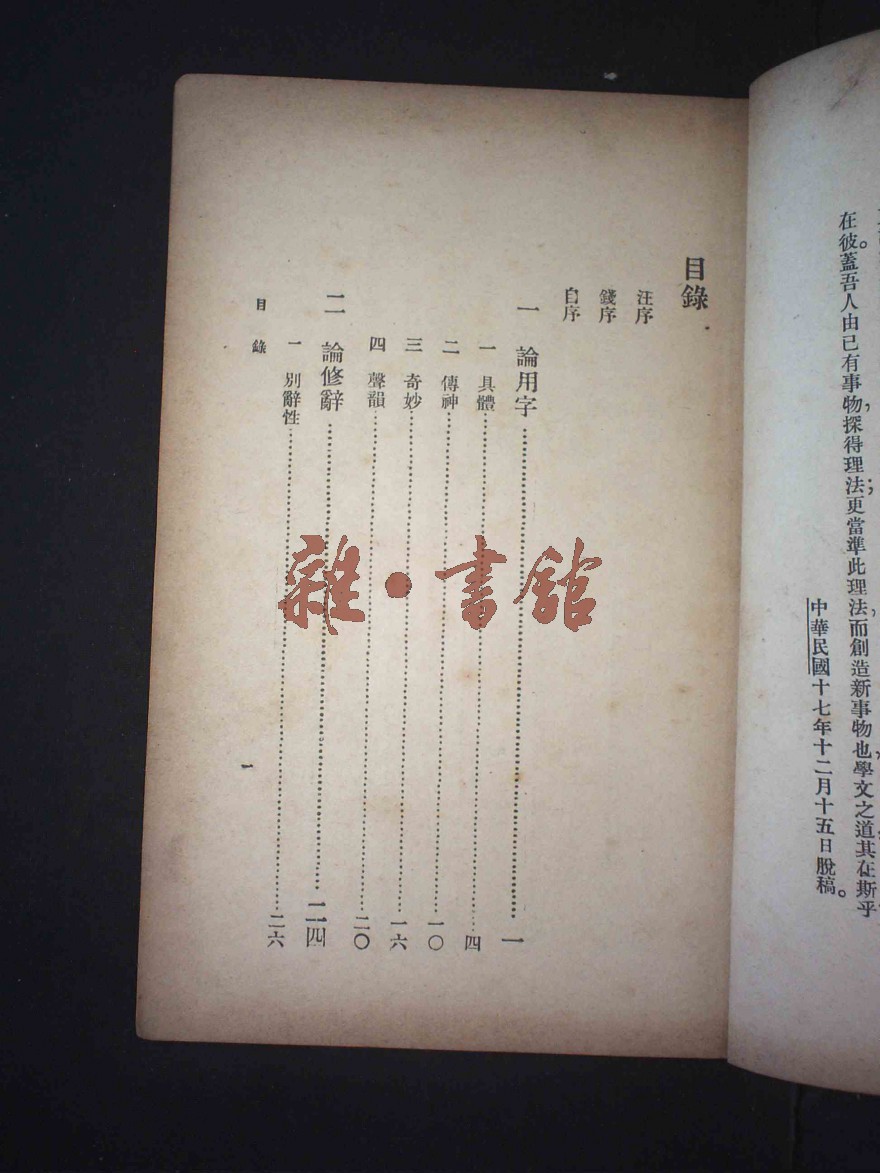 在彼。蓋吾人由已有事物，探得理法；更當準此理法，而創造新事物也，學文之道其在斯乎
中華民國十七年十二月十五日脫稿。
目錄
汪序
錢序
自序
一 論用字……一
一 具體……四
二 傳神……一〇
三 奇妙……一六
四 聲韻……二〇
二 論修辭……二四
一 別辭性……二六
目錄
一
雜·書館